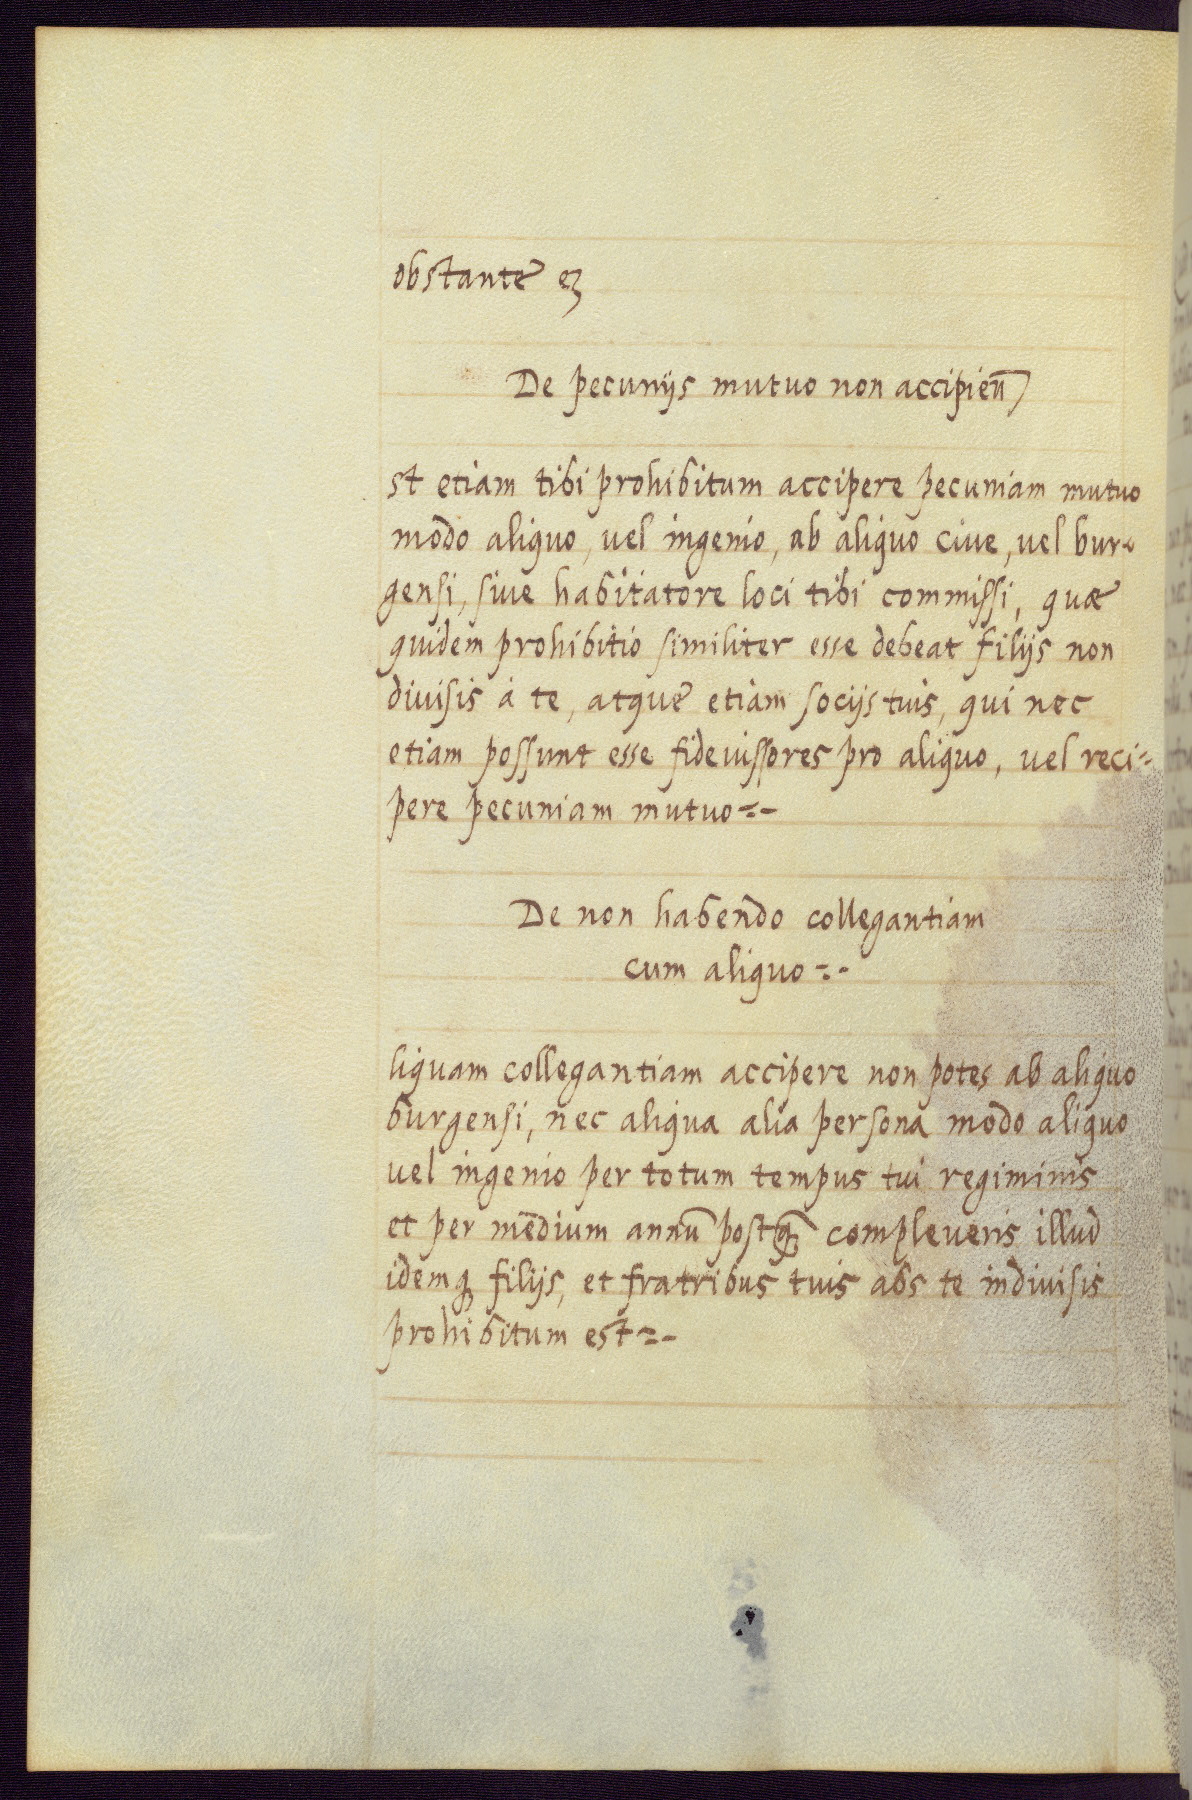 obstante ꝫ
De pecunijs mutuo non accipień
st etiam tibi prohibitum accipere pecuniam mutuo
modo aliquo, vel ingenio, ab aliquo ciue, vel bur-
gensi, siue habitatore loci tibi commissi, quæ
quidem prohibitio similiter esse debeat filijs non
diuisis à te, atque etiam socijs tuis, qui nec
etiam possunt esse fideiussores pro aliquo, vel reci=
pere pecuniam mutuo=-
De non habendo collegantiam
cum aliquo=-
liquam collegantiam accipere non potes ab aliquo
burgensi, nec aliqua alia persona modo aliquo
vel ingenio per totum tempus tui regiminis
et per medium annū postq̄ compleueris illud
idemq; filijs, et fratribus tuis abs te indiuisis
prohibitum est=-